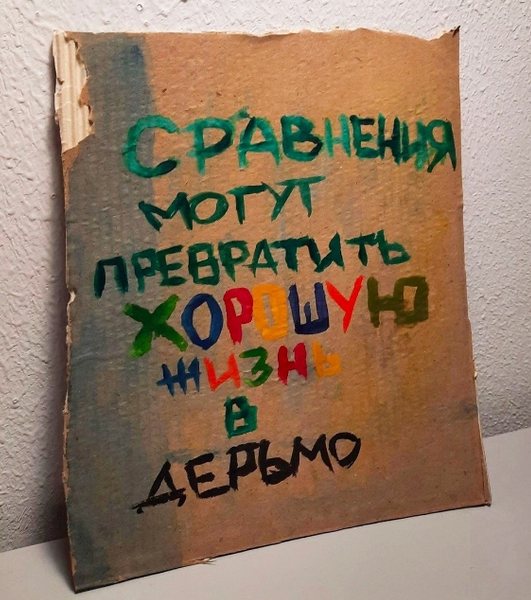 СРАВНЕНИЯ
МОГУТ
ПРЕВРАТИТЬ
ХОРОШУЮ
ЖИЗНЬ
В
ДЕРЬМО